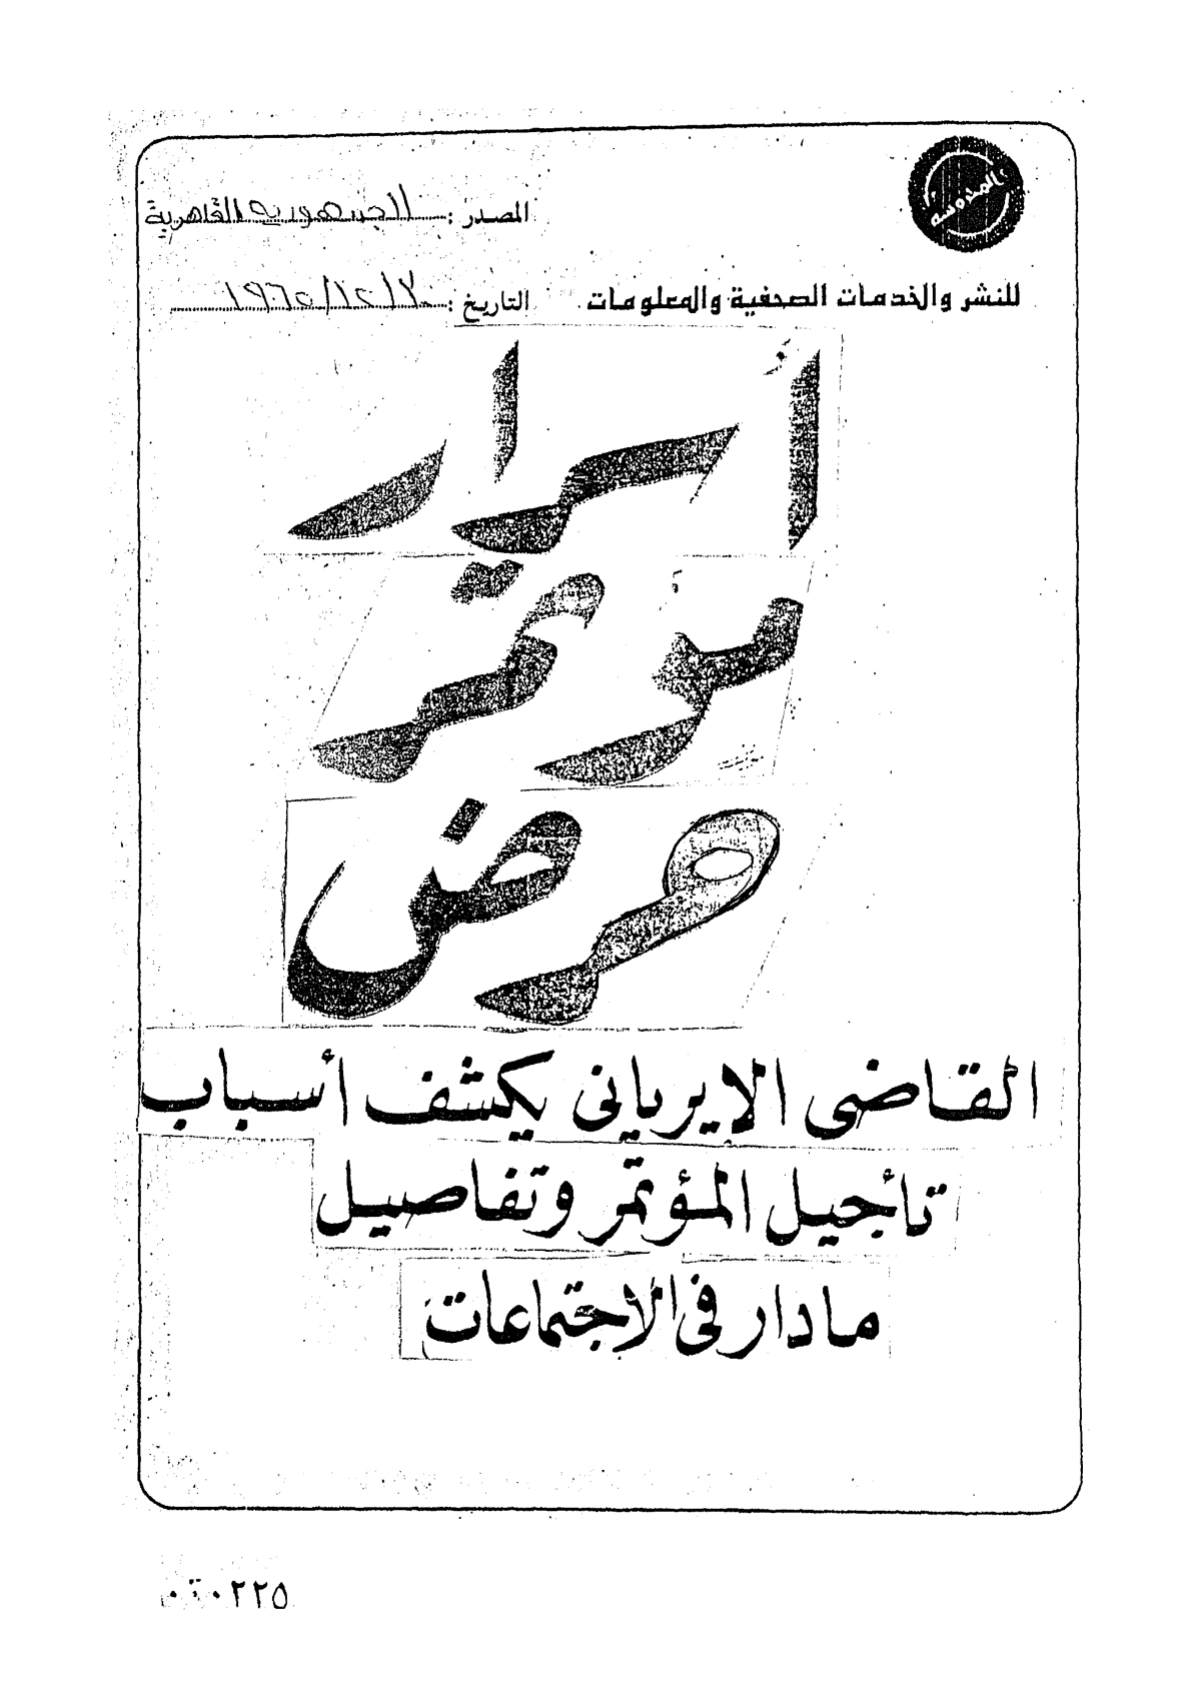 المدوسه
المصدر : الجمهورية القاهرية
للنشر والخدمات الصحفية والمعلومات التاريخ : ٢٠/١٢/١٩٦٥
أسرار
مؤتمر
حرض
القاضى الإيريانى يكشف أسباب
تأجيل المؤتمر وتفاصيل
مادار فى الاجتماعات